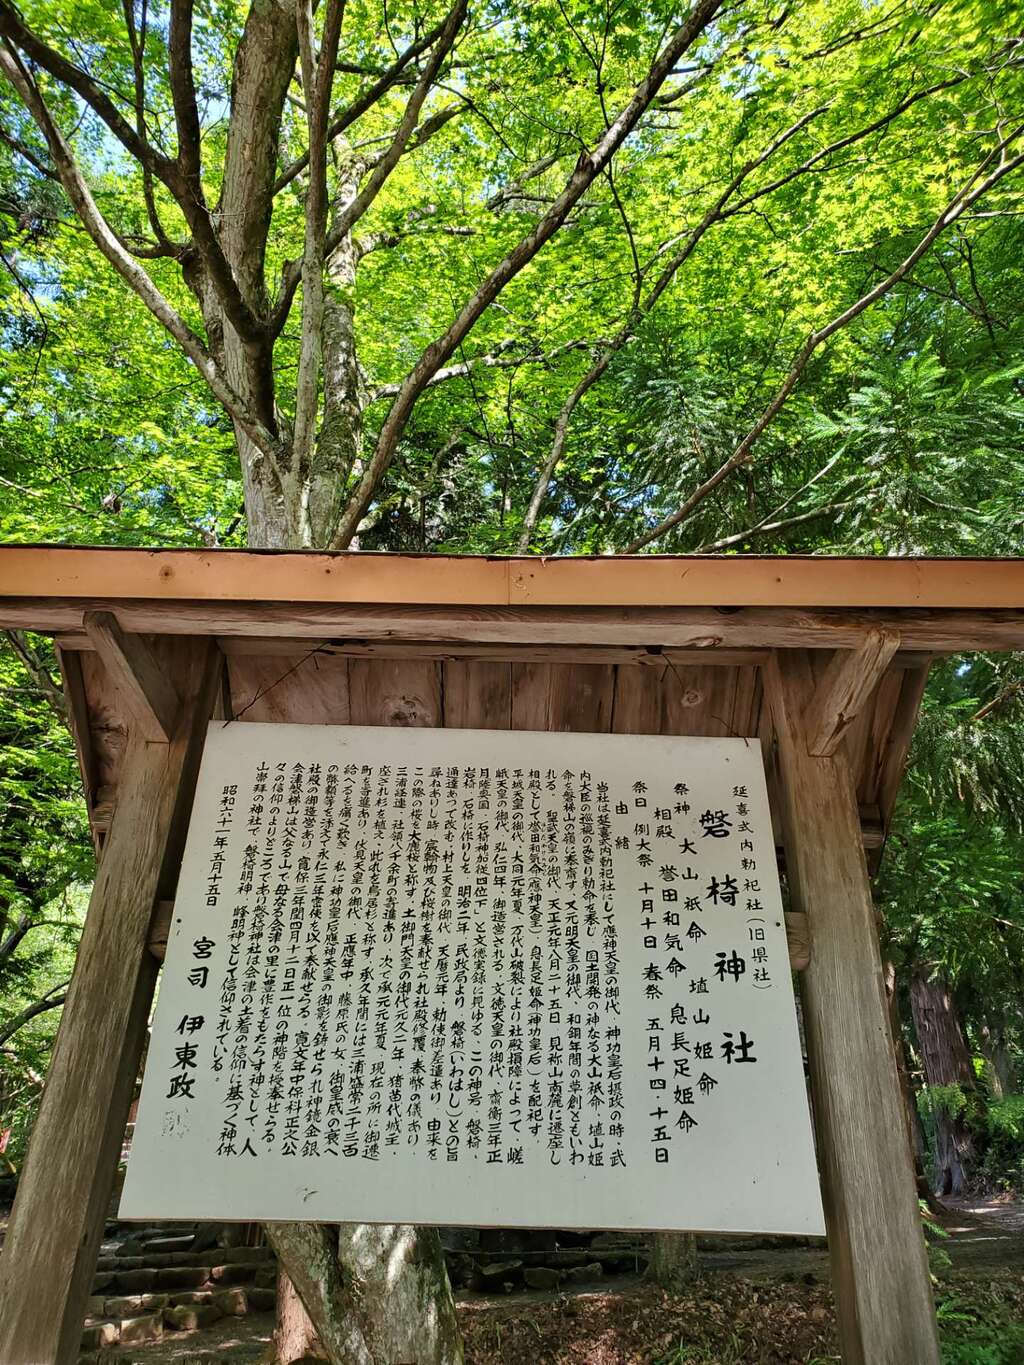 延喜式内勅祀社(旧県社)
磐椅神社
祭神 大山祇命 埴山姫命
相殿 誉田和気命 息長足姫命
祭日 例大祭 十月十日 春祭 五月十四・十五日
由緒
当社は延喜式内勅祀社にして應神天皇の御代、神功皇后摂政の時、武
内大臣の巡視のみぎり勅命を奉じ、国土開発の神なる大山祇命、埴山姫
命を磐梯山の領に奉斎す、又元明天皇の御代、和銅年間の草創ともいわ
れる。聖武天皇の御代、天正元年八月二十五日、見祢山南麓に遷座し
相殿として誉田和気命(應神天皇)息長足姫命(神功皇后)を配祀す。
平城天皇の御代、大同元年夏、万代山破裂により社殿損障によって、嵯
峨天皇の御代、弘仁四年、御造営される。文徳天皇の御代、齋衡三年正
月陸奥国「石椅神加従四位下」と文徳実録に見ゆる、この神号、磐椅、
岩椅、石椅に作りしを、明治二年、民政局より、磐椅(いわはし)との旨
通達あって改む、村上天皇の御代、天暦元年、勅使御差遣あり、由来を
尋ねありし時、宸翰物及び桜樹を奉献せられ社殿修覆、奉幣の儀あり、
この際の桜を大鹿桜と称す、土御門天皇の御代元久二年、猪苗代城主、
三浦経連、社領八千余町の寄進あり、次で承元元年夏、現在の所に御遷
座され杉を植え、此れを鳥居杉と称す、承久年間には三浦盛常二千三百
町を寄進あり、伏見天皇の御代、正應年中、藤原氏の女、御皇威の衰へ
給へるを痛く歎き、私に神功皇后應神天皇の御影を鋳せられ神鏡金銀
の幣額等を添えて永仁三年堂侠を以て奉献せらる、寛文年中保科正之公
社殿の御造営あり、寛保三年閏四月十二日正一位の神階を授奉せらる。
会津磐梯山は父なる山で母なる会津の里に豊作をもたらす神として、人
々の信仰のよりどころであり磐椅神社は会津の土着の信仰に基づく神体
山崇拝の神社で、磐椅明神、峰明神として信仰されている。
昭和六十一年五月十五日
宮司 伊東政